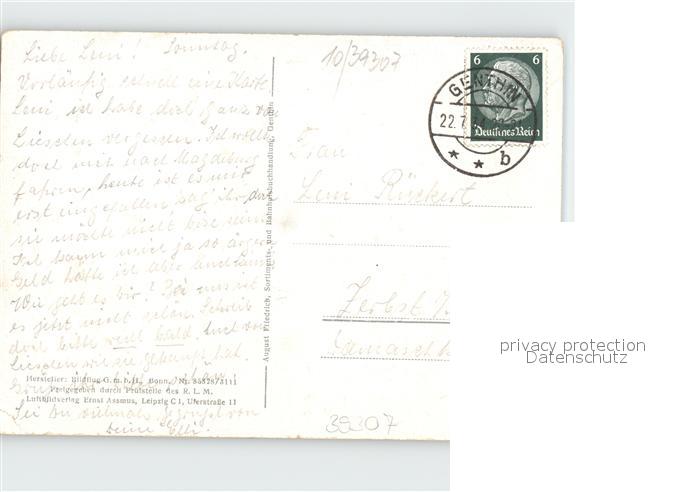 Liebe Leni! Sonntag.
Vorläufig schnell eine Karte
Leni, ich habe doch ganz von
Lieschen vergessen. Ich wollte
doch mit nach Magdeburg
fahren, heute ist es mir
erst eingefallen sag ihr doch
sie möchte nicht böse sein
ich kann mich ja so ärgern
Geld hätte ich aber auch
Wie geht es dir? Bei uns ist
es jetzt nicht schön. Schreib
doch bitte recht bald und von
Lieschen wie sie
Hersteller: Bildflug G.m.b.H., Bonn, Nr.
Freigegeben durch Prüfstelle des R. L. M.
Luftbildverlag Ernst Assmus, Leipzig C 1, Uferstraße 11
Sei Du vielmals gegrüßt von
Deine Elli.
August Friedrich, Sortiments- und Bahnhofsbuchhandlung, Genthin
10/39307
6 6
Deutsches Reich
GENTHIN
22.7.
b
Frau
Leni Rückert
Zerbst
39307
privacy protection
Datenschutz